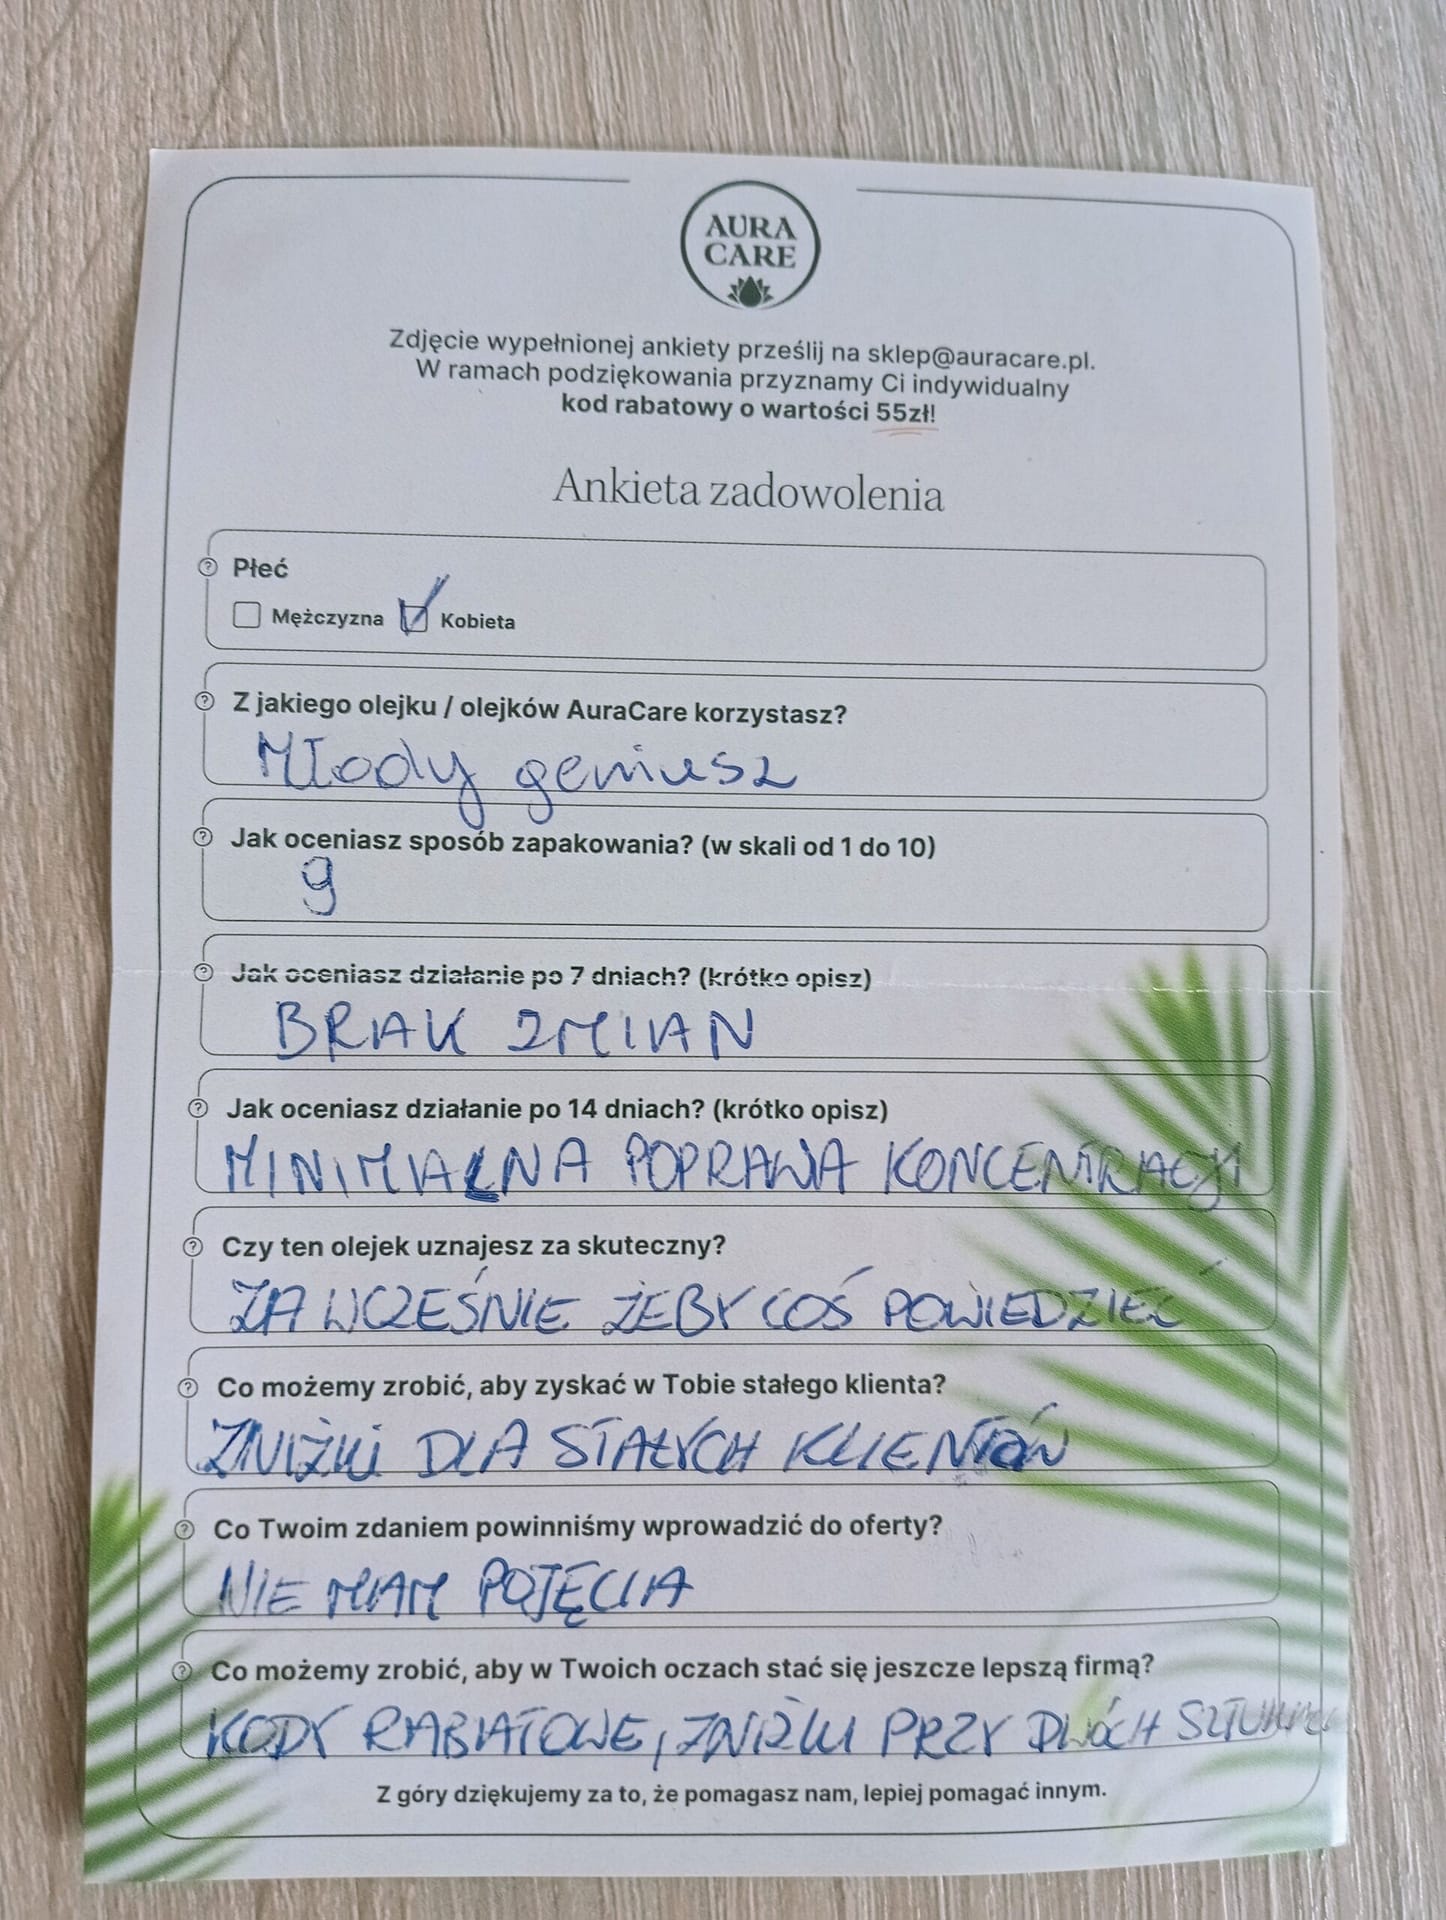 AURA
CARE
Zdjęcie wypełnionej ankiety prześlij na sklep@auracare.pl.
W ramach podziękowania przyznamy Ci indywidualny
kod rabatowy o wartości 55zł!
Ankieta zadowolenia
Płeć
Mężczyzna Kobieta
Z jakiego olejku / olejków AuraCare korzystasz?
Młody geniusz
Jak oceniasz sposób zapakowania? (w skali od 1 do 10)
9
Jak oceniasz działanie po 7 dniach? (krótko opisz)
BRAK ZMIAN
Jak oceniasz działanie po 14 dniach? (krótko opisz)
MINIMALNA POPRAWA KONCENTRACJI
Czy ten olejek uznajesz za skuteczny?
ZA WCZEŚNIE ŻEBY COŚ POWIEDZIEĆ
Co możemy zrobić, aby zyskać w Tobie stałego klienta?
ZNIŻKI DLA STAŁYCH KLIENTÓW
Co Twoim zdaniem powinniśmy wprowadzić do oferty?
NIE MAM POJĘCIA
Co możemy zrobić, aby w Twoich oczach stać się jeszcze lepszą firmą?
KODY RABATOWE, ZNIŻKI PRZY DWÓCH
Z góry dziękujemy za to, że pomagasz nam, lepiej pomagać innym.